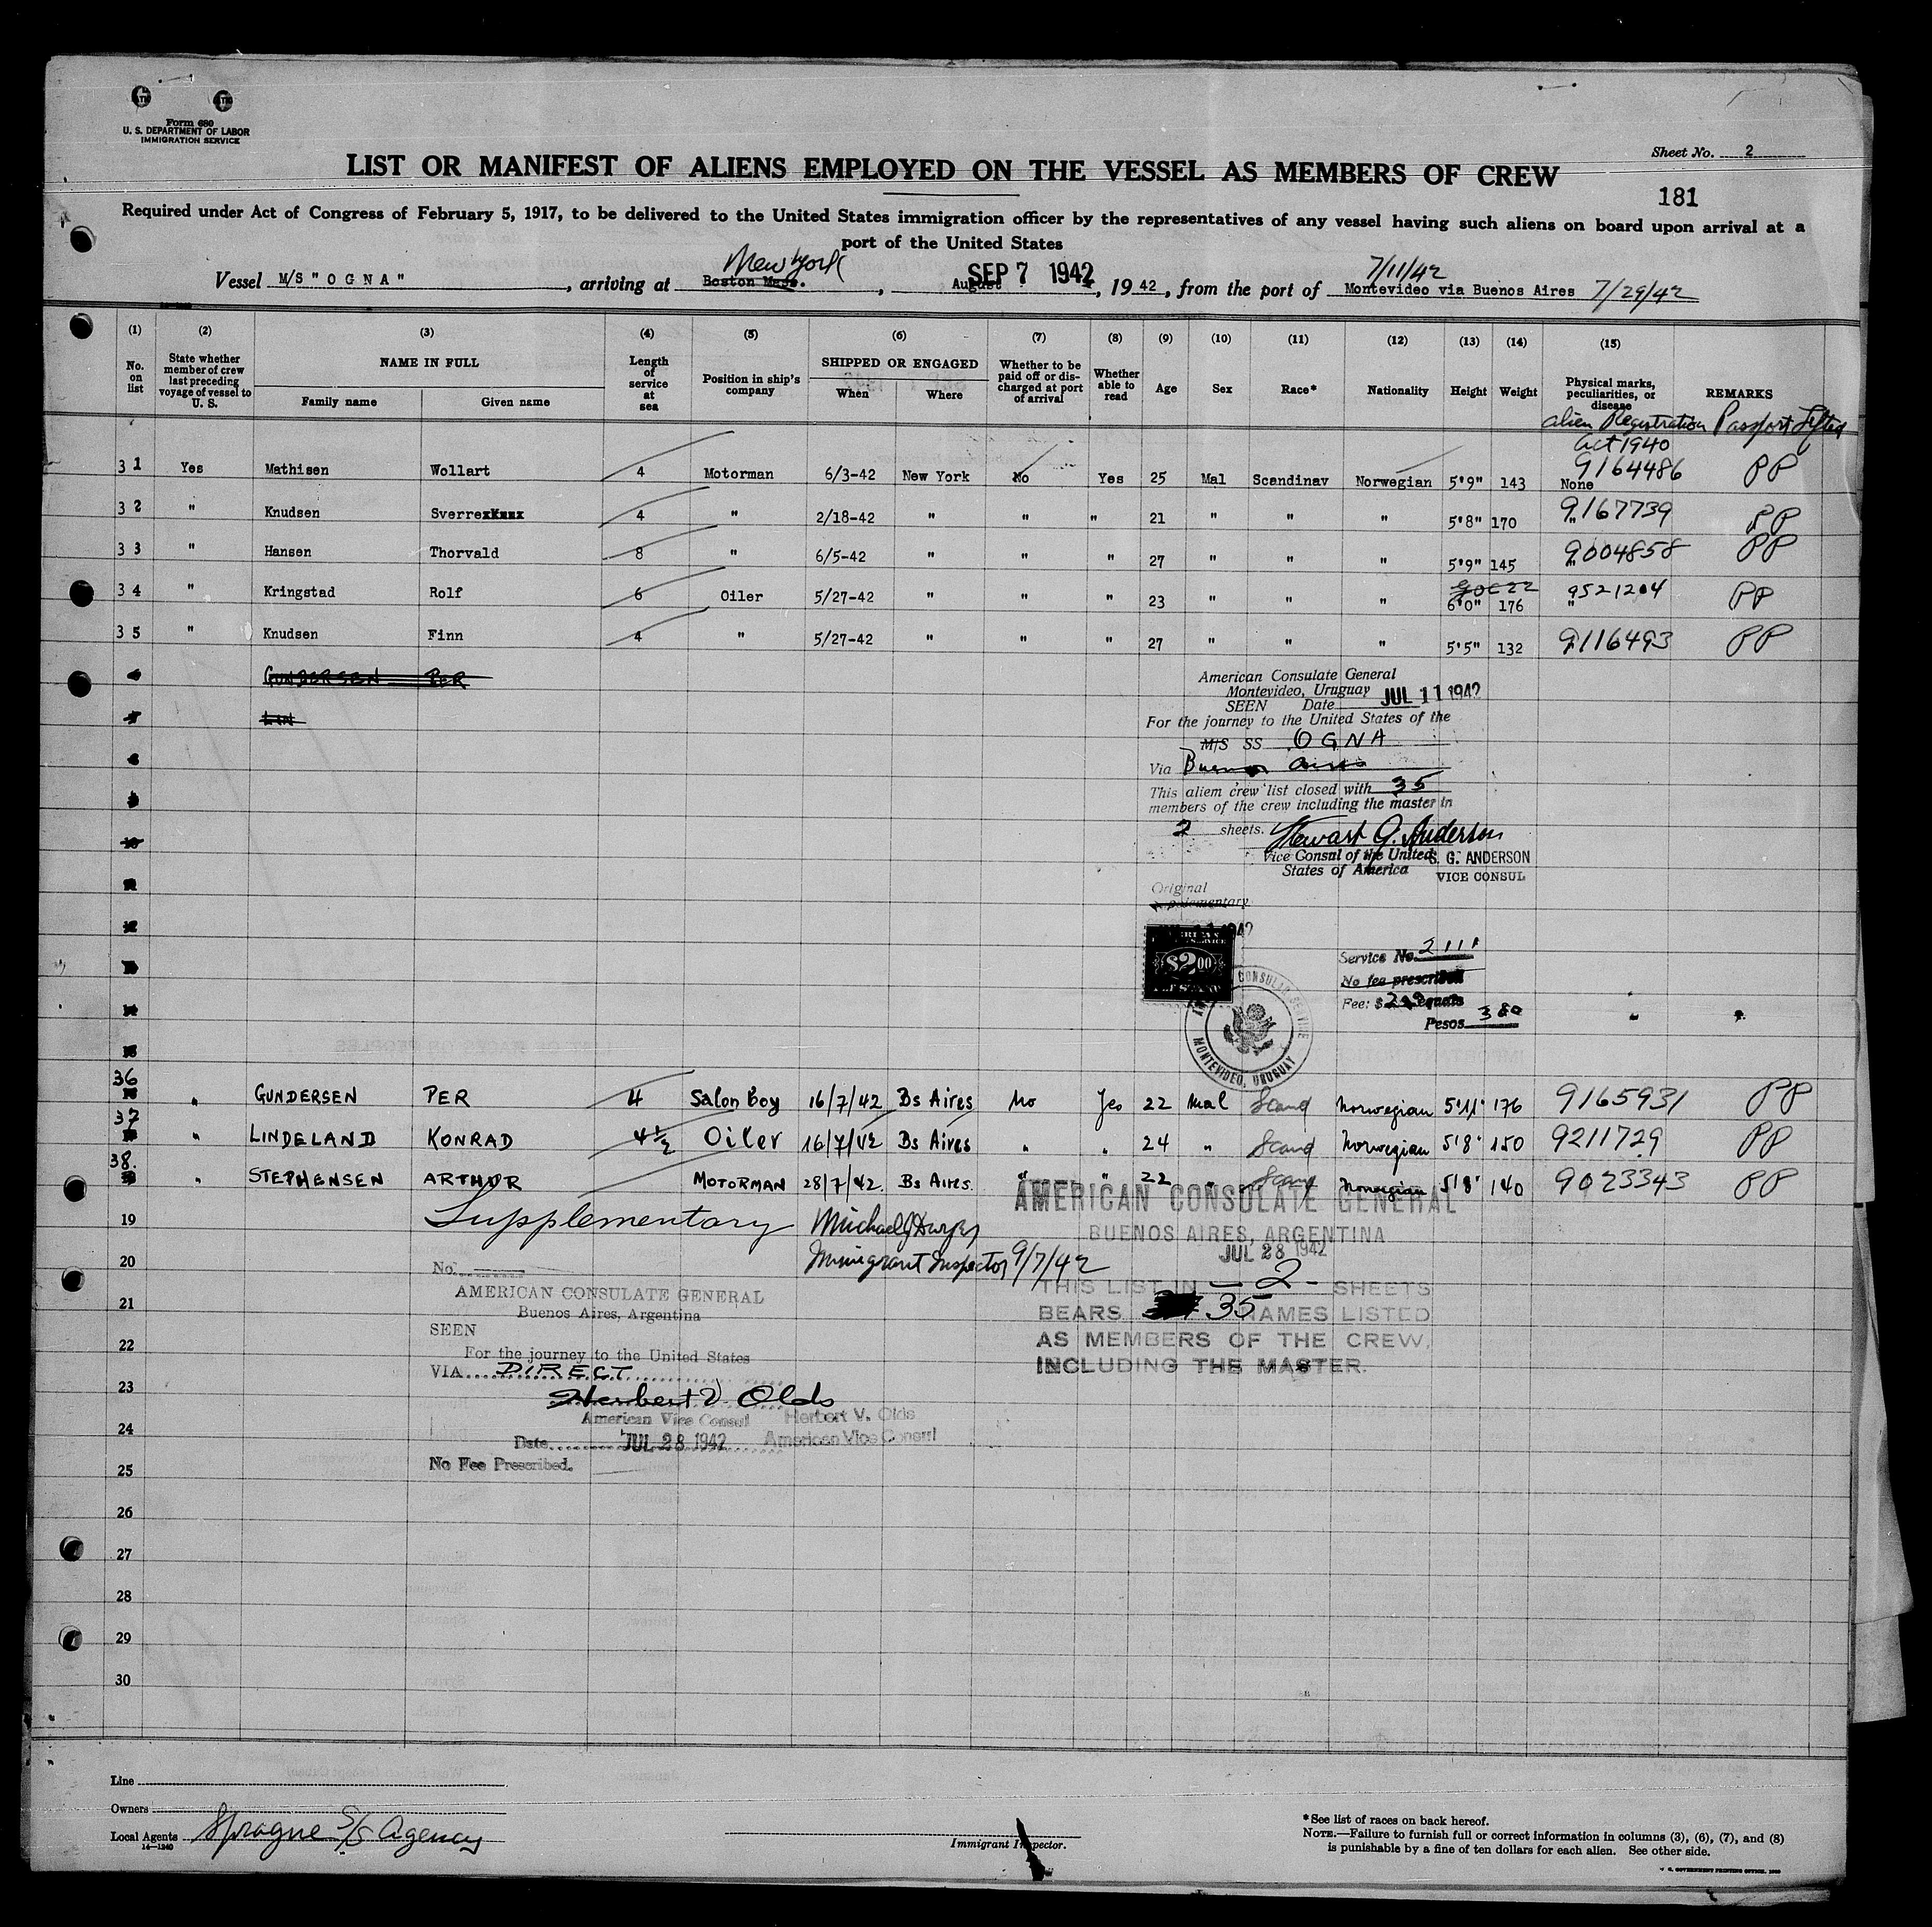 Form 680
U. S. DEPARTMENT OF LABOR
IMMIGRATION SERVICE
Sheet No. 2
LIST OR MANIFEST OF ALIENS EMPLOYED ON THE VESSEL AS MEMBERS OF CREW
181
Required under Act of Congress of February 5, 1917, to be delivered to the United States immigration officer by the representatives of any vessel having such aliens on board upon arrival at a
port of the United States
New York SEP 7 1942 7/11/42
Vessel M/S "OGNA", arriving at Boston Mass., August, 1942, from the port of Montevideo via Buenos Aires 7/29/42
(1) (2) (3) (4) (5) (6) (7) (8) (9) (10) (11) (12) (13) (14) (15)
No. on list State whether member of crew last preceding voyage of vessel to U. S. NAME IN FULL Family name Given name Length of service at sea Position in ship's company SHIPPED OR ENGAGED When Where Whether to be paid off or discharged at port of arrival Whether able to read Age Sex Race* Nationality Height Weight Physical marks, peculiarities, or disease REMARKS
Alien Registration Passport Lifted
Act 1940
31 Yes Mathisen Wollart 4 Motorman 6/3-42 New York No Yes 25 Mal Scandinav Norwegian 5'9" 143 None 9164486 PP
32 " Knudsen Sverre 4 " 2/18-42 " " " 21 " " " 5'8" 170 " 9167739 PP
33 " Hansen Thorvald 8 " 6/5-42 " " " 27 " " " 5'9" 145 " 9004858 PP
34 " Kringstad Rolf 6 Oiler 5/27-42 " " " 23 " " " 6'0" 176 " 9521204 PP
35 " Knudsen Finn 4 " 5/27-42 " " " 27 " " " 5'5" 132 " 9116493 PP
GUNDERSEN PER
American Consulate General
Montevideo, Uruguay JUL 11 1942
SEEN Date
For the journey to the United States of the
M/S SS OGNA
Via Buenos Aires
This aliem crew list closed with 35
members of the crew including the master in
2 sheets. Stewart G. Anderson
Vice Consul of the United S. G. ANDERSON
States of America VICE CONSUL
Original
Supplementary
1942
$2.00
CONSULAR SERVICE
MONTEVIDEO, URUGUAY
Service No. 2111
No fee prescribed
Fee: $ equals
Pesos 380
36 " GUNDERSEN PER 4 Salon Boy 16/7/42 Bs Aires No Yes 22 Mal Scand Norwegian 5'11" 176 9165931 PP
37 " LINDELAND KONRAD 4½ Oiler 16/7/42 Bs Aires " " 24 " Scand Norwegian 5'8" 150 9211729 PP
38. " STEPHENSEN ARTHUR MOTORMAN 28/7/42. Bs Aires. " " 22 " Scand Norwegian 5'8" 140 9023343 PP
AMERICAN CONSULATE GENERAL
BUENOS AIRES, ARGENTINA
JUL 28 1942
THIS LIST IN - 2 - SHEETS
BEARS 35 NAMES LISTED
AS MEMBERS OF THE CREW,
INCLUDING THE MASTER.
19 Supplementary Michael J
20 Immigrant Inspector 9/7/42
No.
AMERICAN CONSULATE GENERAL
21
Buenos Aires, Argentina
SEEN
22
For the journey to the United States
VIA DIRECT
23
Herbert V Olds
American Vice Consul Herbert V. Olds
24
Date JUL 28 1942 American Vice Consul
No Fee Prescribed.
25
26
27
28
29
30
Line
Owners
Local Agents Sprague S/S Agency
14-1240
Immigrant Inspector.
*See list of races on back hereof.
NOTE.—Failure to furnish full or correct information in columns (3), (6), (7), and (8)
is punishable by a fine of ten dollars for each alien. See other side.
U. S. GOVERNMENT PRINTING OFFICE